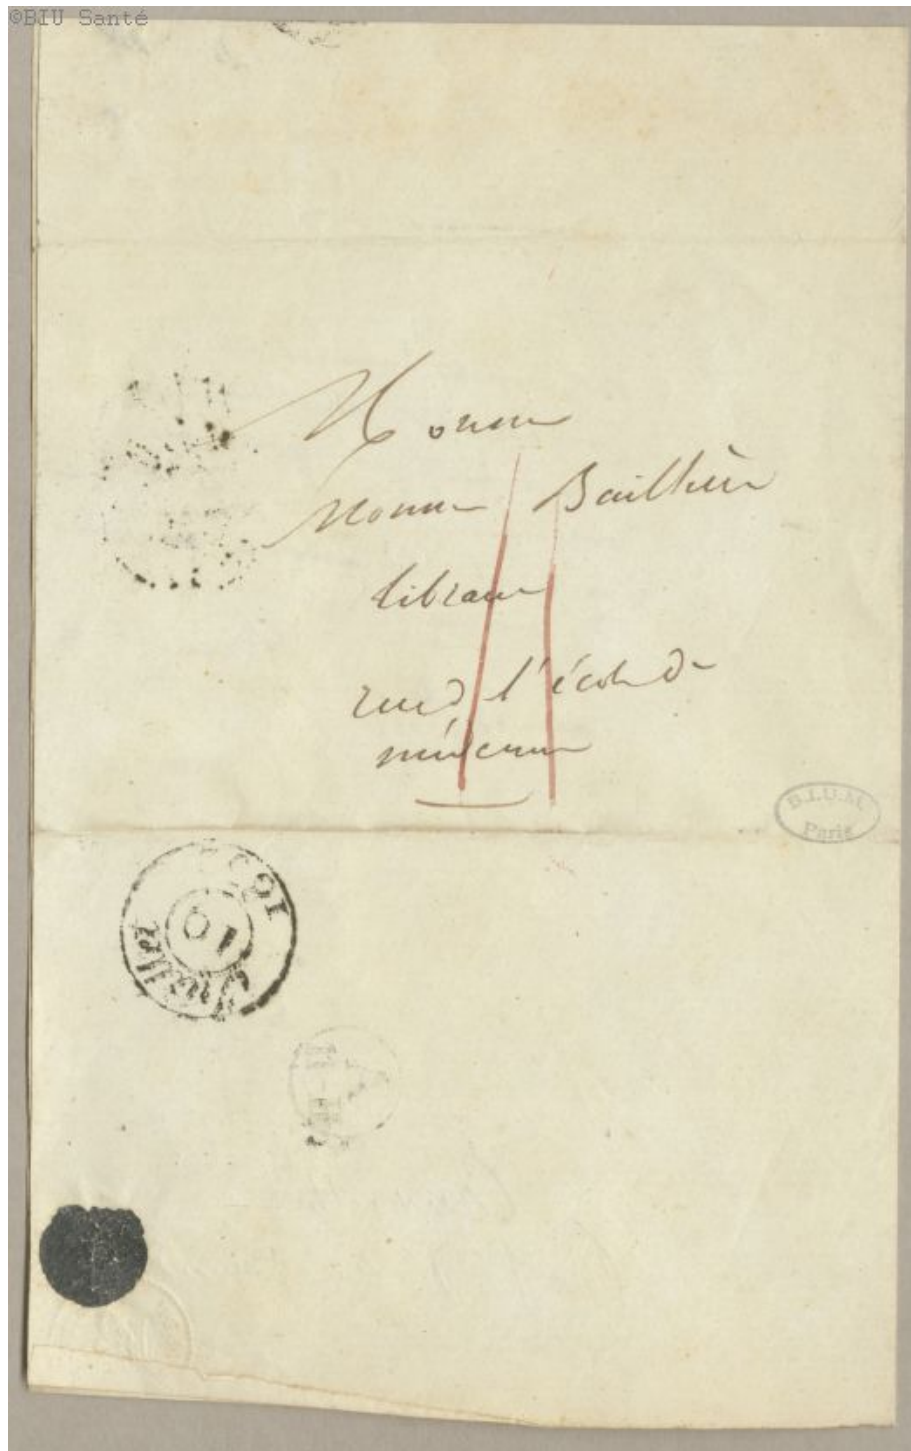 ©BIU Santé
Monsieur
Monsieur Baillière
libraire
rue de l'école de
médecine
B.I.U.M.
Paris
10
Juillet